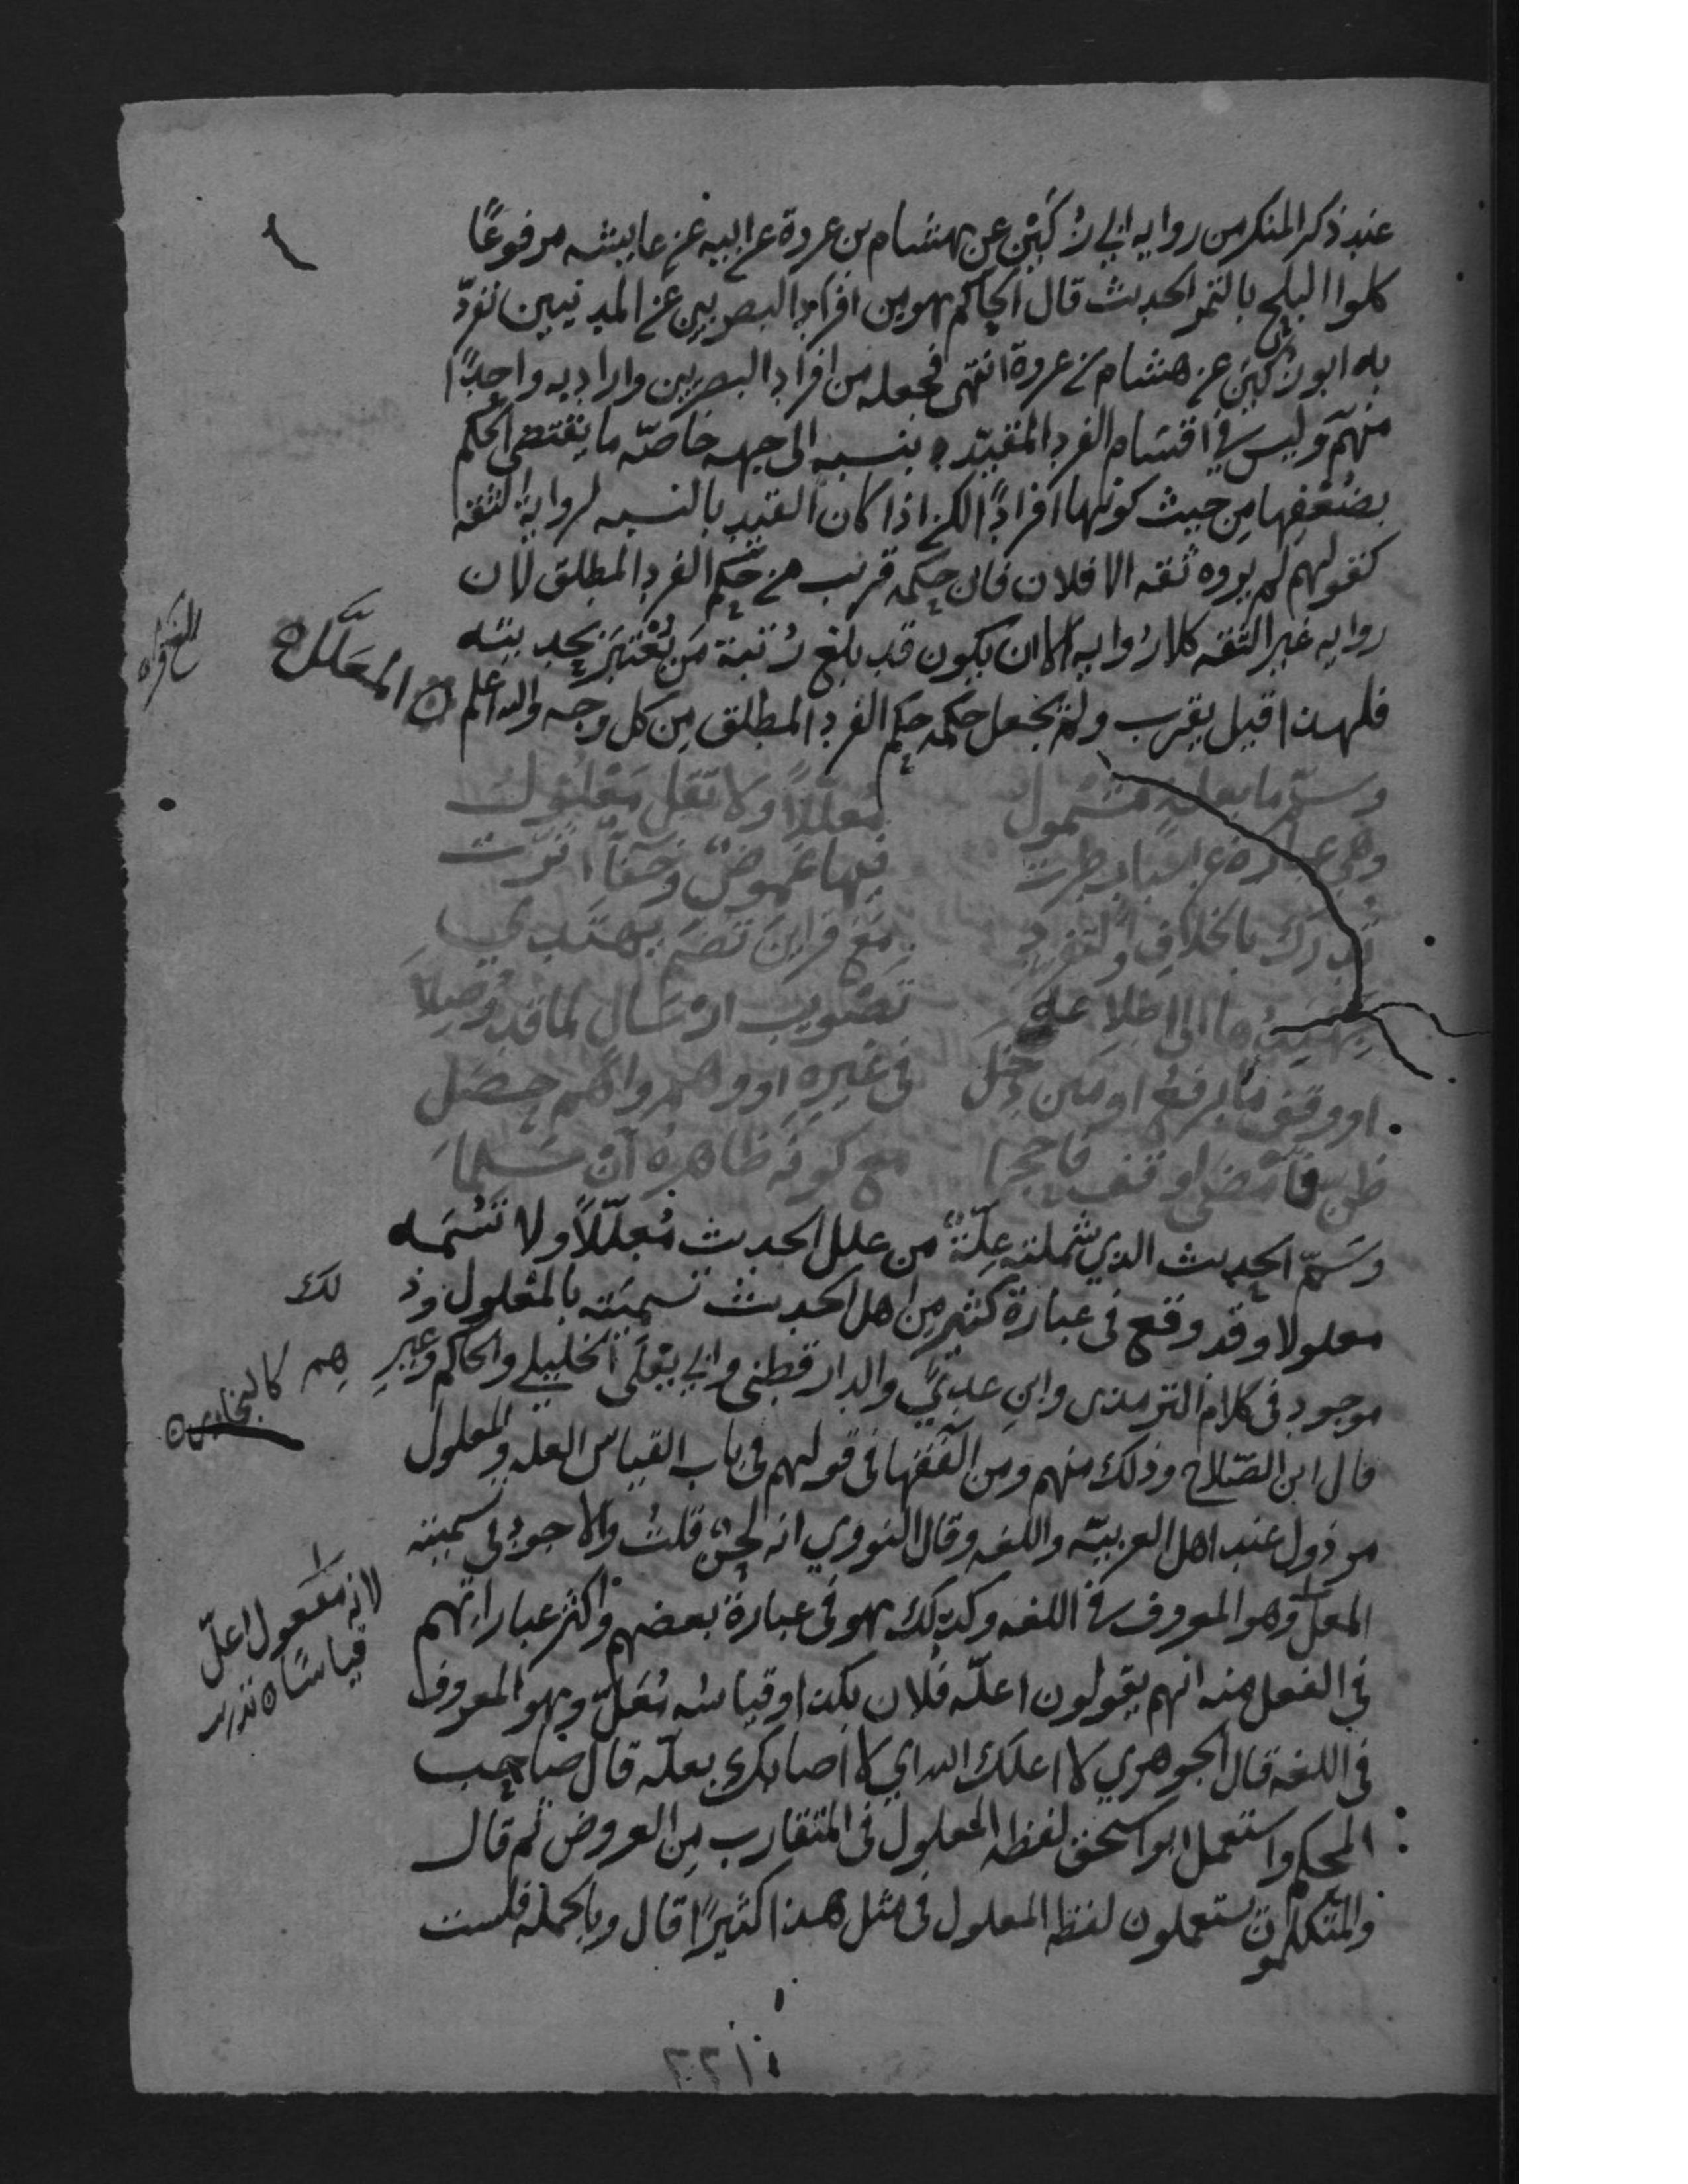 عند ذكر المنكر من روايه ابي زُكَيْن عن هشام بن عروة عن ابيه عن عايشه مرفوعًا
كلوا البلح بالتمر الحديث قال الحاكم هو من افراد البصريين عن المدنيين تفرّد
به ابو زُكين عن هشام بن عروة انتهى فجعله من افراد البصريين واراد به واحدًا
منهم وليس في اقسام الفرد المقيّد بنسبه الى جهه خاصّه ما يقتضي الحكم
بضعْفِها مِن حيث كونها افرادًا لكن اذا كان القيد بالنسبه لرواية الثقه
كقولهم لم يروه ثقه الا فلان فان حكمه قريب من حكم الفرد المطلق لان
روايه غير الثقه كلا رُوايه الا ان يكون قد بلغ رُتبة مَن يُعْتبَر بحديثه
فلهذا قيل يقرب ولم يجعل حكمه حكم الفرد المطلق مِن كل وجه والله اعلم ۞ المُعَلَّل
وسمّ ما بعلّةٍ مشمول مُعلّلاً ولا تقل مَعْلول
وهي عبارة عن اسباب طرت فيها غموضٌ وخفآ اثّرت
تُدرَك بالخلافِ والتفرد مَع قراين تضمّ يهتدي
جهبذُها الى اطلاعه على تصْويب ارسال لما قد وُصِلا
او وقفِ ما يرفعُ او متن دخل في غيره او وهم واهمٍ حصَل
ظن فامْضى او وقف فاحجما مع كونه ظاهرُه ان سَلما
وسَمّ الحديث الذي شملته عِلّةٌ من علل الحديث مُعلّلاً ولا تُسَمه
معلولا وقد وقع في عبارة كثير مِن اهل الحديث تسميته بالمعلول وذ لك
موجود في كلام الترمذي وابن عديّ والدارقطني وابي يَعْلَى الخليلي والحاكم وغير هم كالبخاري ۞
قال ابن الصّلاح وذلك منهم ومن الفقها في قولهم في باب القياس العله والمعلول
مرذول عند اهل العربيّه واللغه وقال النووي انه لحنٌ قلتُ والاجود في تسميته
المعلّ وهو المعروف في اللغه وكذلك هو في عبارة بعضهم واكثر عباراتهم
لانه مفعول اعلّ
قياسًا ۞
في الفعل منه انهم يقولون اعلّه فلان بكذا وقياسُه مُعَلّ وهو المعروف
في اللغه قال الجوهري لا اعلك الله اي لا اصابك بعلّه قال صاحب
المحكم واستعمل ابو اسحق لفظه المعلول في المتقارب مِن العروض ثم قال
والمتكلمون يستعملون لفظه المعلول في مثل هذا كثيرًا قال وبالجمله فلست